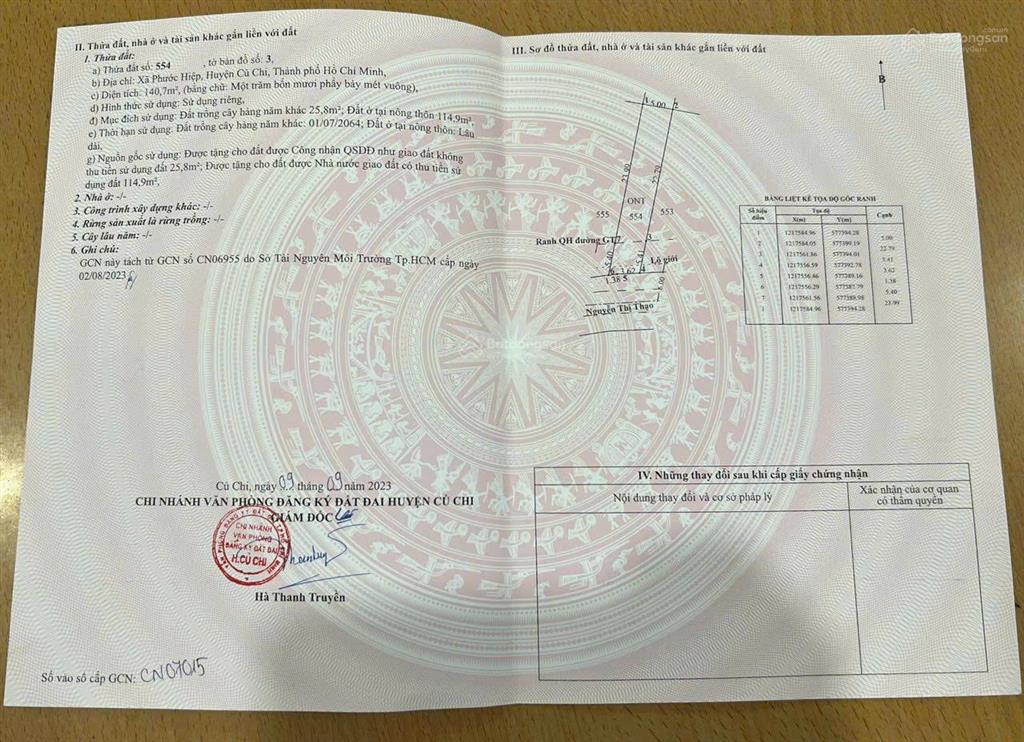 II. Thửa đất, nhà ở và tài sản khác gắn liền với đất
1. Thửa đất:
a) Thửa đất số: 554 , tờ bản đồ số: 3,
b) Địa chỉ: Xã Phước Hiệp, Huyện Củ Chi, Thành phố Hồ Chí Minh,
c) Diện tích: 140,7m², (bằng chữ: Một trăm bốn mươi phẩy bảy mét vuông),
d) Hình thức sử dụng: Sử dụng riêng,
đ) Mục đích sử dụng: Đất trồng cây hàng năm khác 25,8m²; Đất ở tại nông thôn 114,9m²,
e) Thời hạn sử dụng: Đất trồng cây hàng năm khác: 01/07/2064; Đất ở tại nông thôn: Lâu
dài,
g) Nguồn gốc sử dụng: Được tặng cho đất được Công nhận QSDĐ như giao đất không
thu tiền sử dụng đất 25,8m²; Được tặng cho đất được Nhà nước giao đất có thu tiền sử
dụng đất 114,9m²,
2. Nhà ở: -/-
3. Công trình xây dựng khác: -/-
4. Rừng sản xuất là rừng trồng: -/-
5. Cây lâu năm: -/-
6. Ghi chú:
GCN này tách từ GCN số CN06955 do Sở Tài Nguyên Môi Trường Tp.HCM cấp ngày
02/08/2023
Củ Chi, ngày 09 tháng 09 năm 2023
CHI NHÁNH VĂN PHÒNG ĐĂNG KÝ ĐẤT ĐAI HUYỆN CỦ CHI
GIÁM ĐỐC
CHI NHÁNH
VĂN PHÒNG
ĐĂNG KÝ ĐẤT ĐAI
H.CỦ CHI
Hà Thanh Truyền
Số vào sổ cấp GCN: CN07015
III. Sơ đồ thửa đất, nhà ở và tài sản khác gắn liền với đất
B
1 5.00 2
23.99
22.79
ONT
555
554
553
Ranh QH đường GT 7 3
5.40
5.41
Lộ giới
6 3.62 4
1.38 5
8.00
Nguyễn Thị Thạo
BẢNG LIỆT KÊ TỌA ĐỘ GÓC RANH
Số hiệu điểm Tọa độ Cạnh
X(m) Y(m)
1 1217584.96 577394.28
5.00
2 1217584.05 577399.19
22.79
3 1217561.86 577394.01
5.41
4 1217556.59 577392.78
3.62
5 1217556.86 577389.16
1.38
6 1217556.29 577387.79
5.40
7 1217561.56 577388.98
23.99
1 1217584.96 577394.28
IV. Những thay đổi sau khi cấp giấy chứng nhận
Nội dung thay đổi và cơ sở pháp lý
Xác nhận của cơ quan
có thẩm quyền
Batdongsan